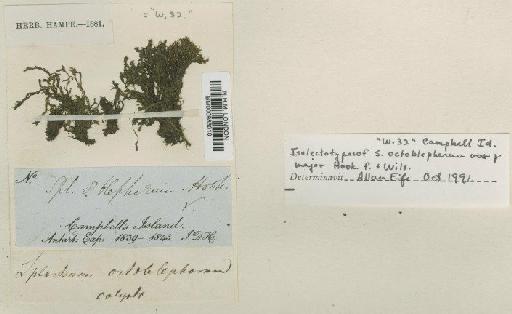 = "W.32."
HERB. HAMPE.—1881.
N.H.M. LONDON
No.
Spl. 8 blepharum Hook.
Campbells Island.
Antarct. Exp. 1839–1843. J.D.H.
Splachnum octoblepharum
calypto
"W.32" Campbell Id.
Isolectotype of S. octoblepharum var β
major Hook f. & Wils.
Determinavit Allan Fife Oct 1991